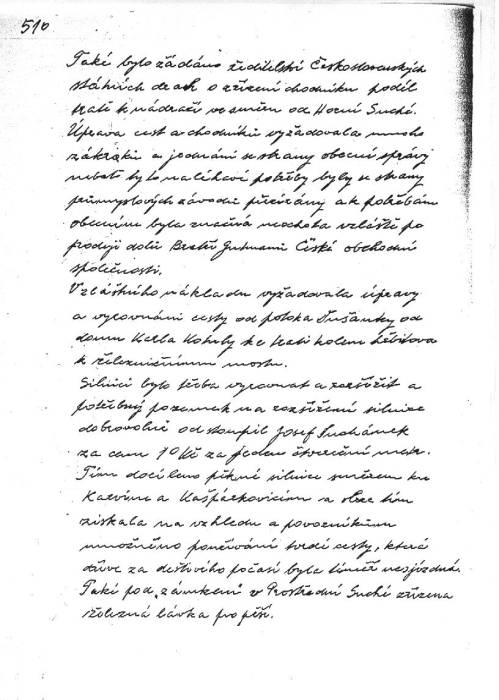 510
Také bylo žádáno ředitelství Československých
státních drah o zřízení chodníku podél
trati k nádraží ve směru od Horní Suché.
Úprava cest a chodníků vyžadovala mnoho
zákroků a jednání se strany obecní správy
neboť bylo naléhavé potřeby byly se strany
průmyslových závodů přezírány a k potřebám
obecním byla značná neochota zvláště po
prodeji dolů Bratří Gutmanni České obchodní
společnosti.
Vzláštního nákladu vyžadovala úpravy
a vyrovnání cesty od potoka Sušanky od
domu Karla Kotuly ke trati kolem
k železničnímu mostu.
Silnici bylo třeba vyrovnat a rozšířit a
potřebný pozemek na rozšíření silnice
dobrovolně odstoupil Josef Suchánek
za cenu 10 Kč za jeden čtvereční metr.
Tím docíleno pěkné silnice směrem ku
Karvinu a Kašpárkovicím a obec tím
získala na vzhledu a povozníkům
umožněno používání tvrdé cesty, která
dříve za deštivého počasí byla téměř nesjízdná.
Také pod "zámkem" v Prostřední Suché zřízena
železná lávka pro pěší.